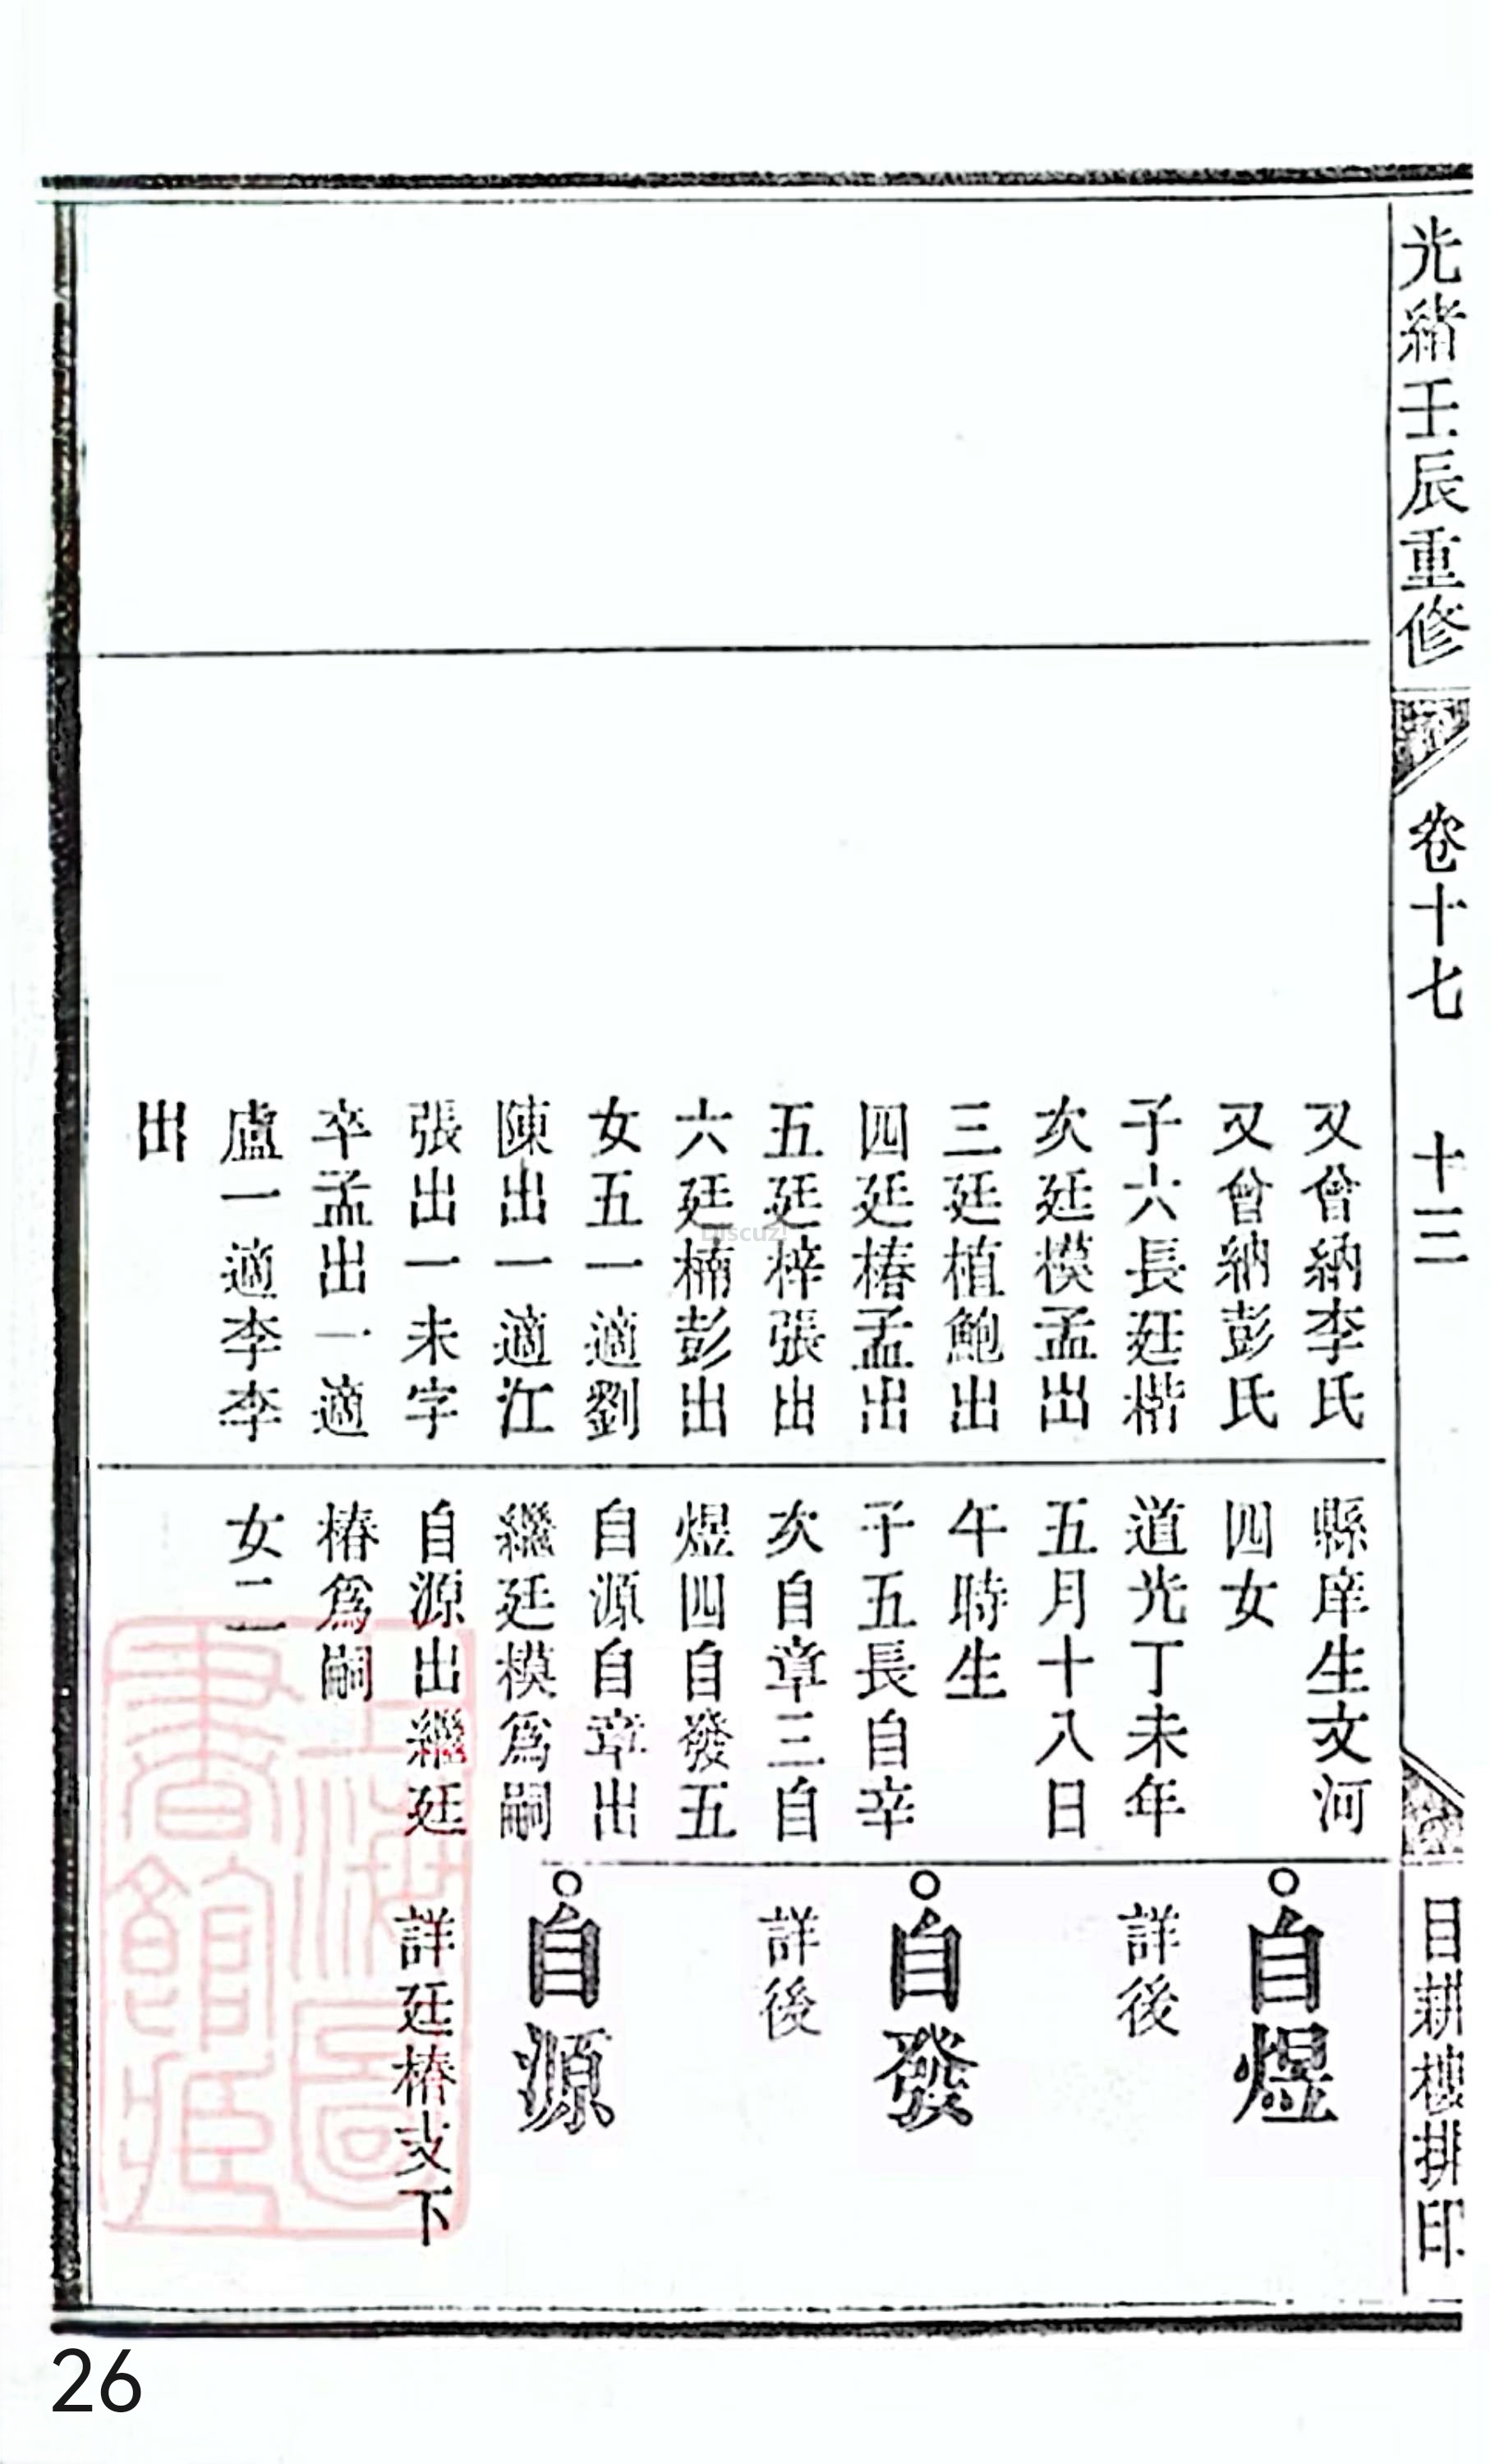 光緒壬辰重修
卷十七
十三
目耕樓排印
又曾納李氏
又曾納彭氏
子六長廷楷
次廷模孟出
三廷植鮑出
四廷椿孟出
五廷梓張出
六廷楠彭出
女五一適劉
陳出一適江
張出一未字
卒孟出一適
盧一適李李
出
縣庠生文河
四女
道光丁未年
五月十八日
午時生
子五長自辛
次自章三自
煜四自發五
自源自章出
繼廷模為嗣
自源出繼廷
椿為嗣
女二
自煜
詳後
自發
詳後
自源
詳廷椿支下
上海圖
書館藏
Discuz!
26